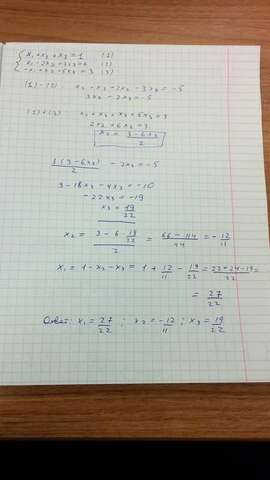 x₁ + x₂ + x₃ = 1 (1)
x₁ - 2x₂ + 3x₃ = 6 (2)
-x₁ + x₂ + 5x₃ = 3 (3)
(1) - (2) x₂ + x₃ + 2x₂ - 3x₃ = -5
3x₂ - 2x₃ = -5
x₂ + x₂ + x₃ + 5x₃ = 3
2x₂ + 6x₃ = 3
x₂ = (3 - 6x₃)/2
3(3 - 6x₃)/2 - 2x₃ = -5
3 - 18x₃ - 4x₃ = -10
-22x₃ = -19
x₃ = 19/22
x₂ = (3 - 6·19/22)/2 = (66 - 114)/44 = -12/11
x₁ = 1 - x₂ - x₃ = 1 + 12/11 - 19/22 = (22 + 24 - 19)/22 =
= 27/22
Ответ: x₁ = 27/22 ; x₂ = -12/11 ; x₃ = 19/22